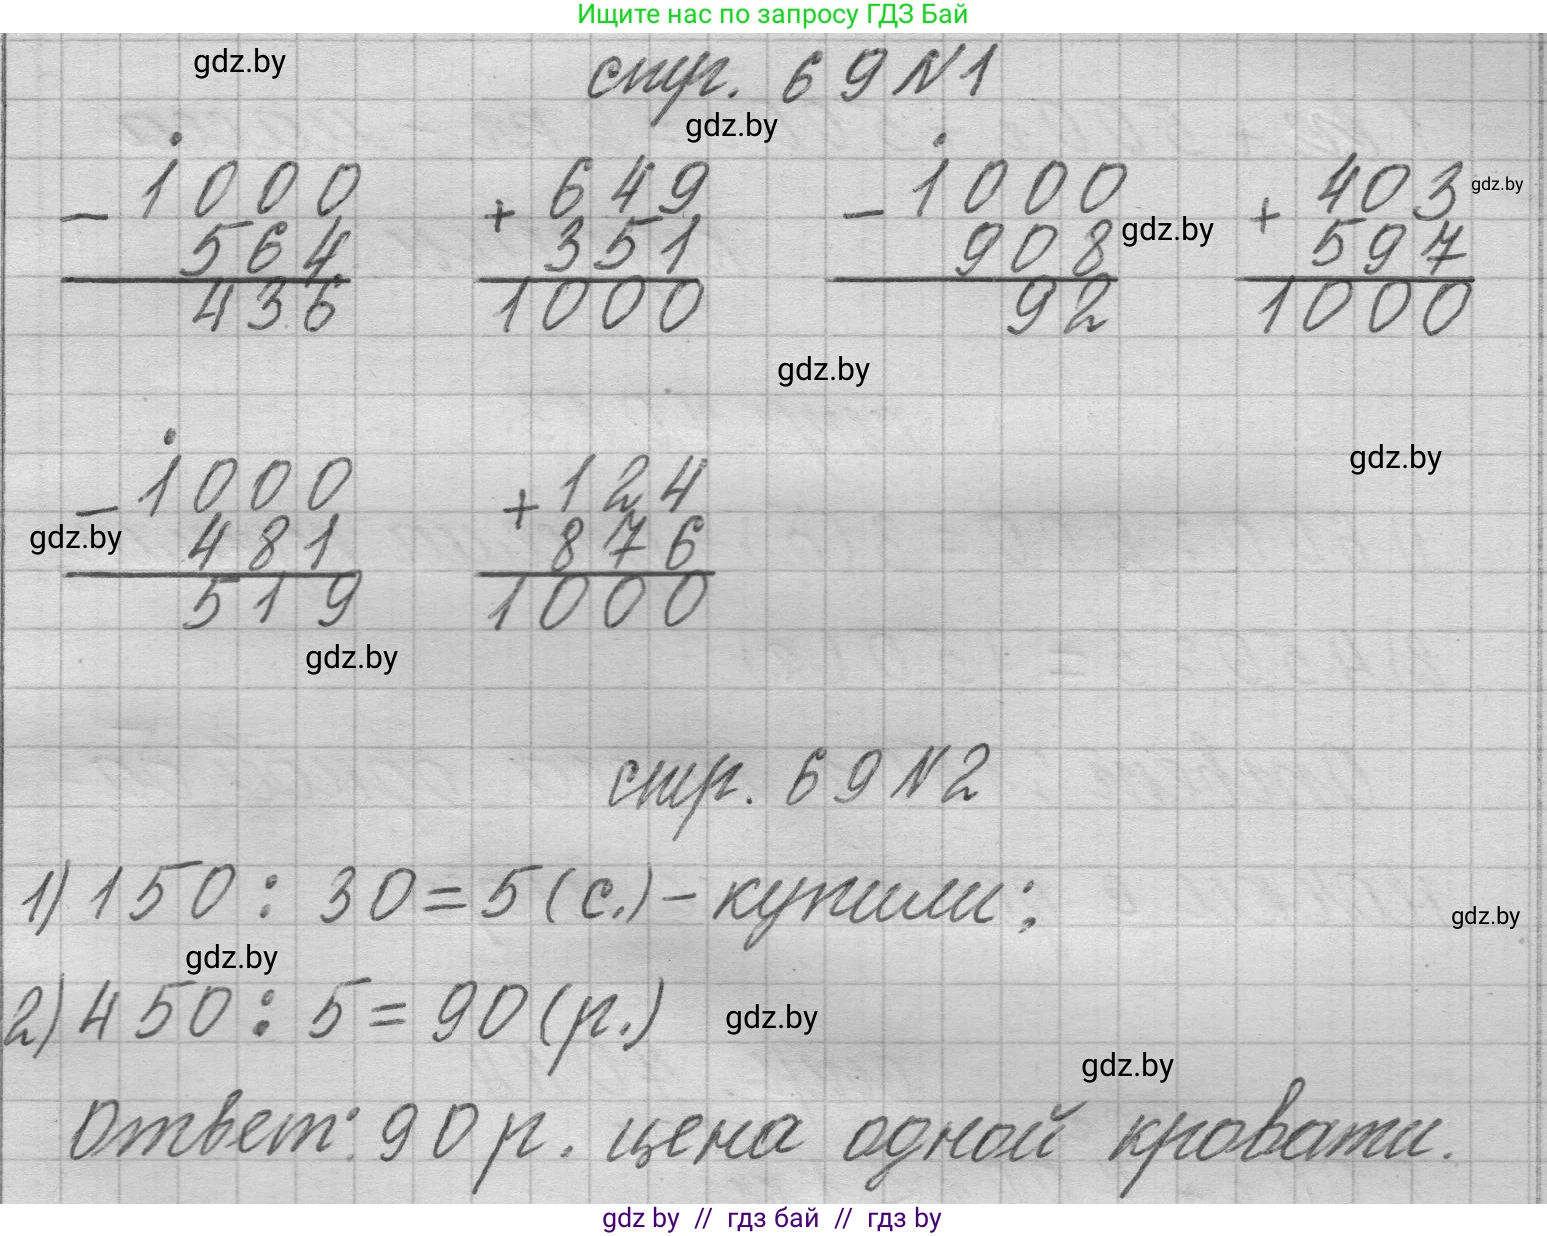 Ищите нас по запросу ГДЗ Бай
gdz.by
стр. 69 №1
gdz.by
- 1000 + 649 - 1000 + 403 gdz.by
564 351 908 gdz.by 597
436 1000 92 1000
gdz.by
gdz.by
- 1000 + 124
gdz.by 481 876
519 1000
gdz.by
стр. 69 №2
1) 150 : 30 = 5 (с.) - купили;
gdz.by
gdz.by
2) 450 : 5 = 90 (р.) gdz.by
gdz.by
Ответ: 90 р. цена одной кровати.
gdz by // гдз бай // гдз by